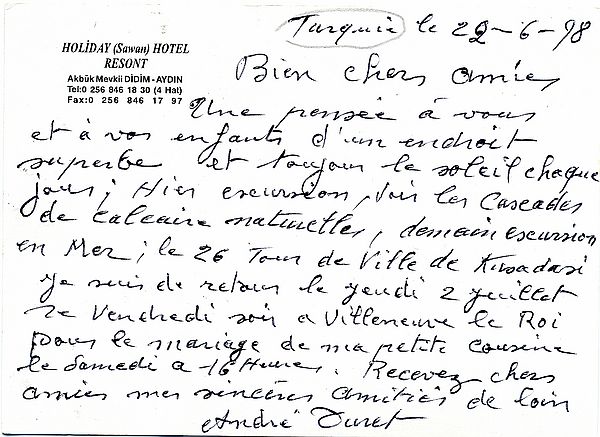 Turquie le 22-6-98
HOLIDAY (Sawan) HOTEL
RESONT
Akbük Mevkii DİDİM-AYDIN
Tel:0 256 846 18 30 (4 Hat)
Fax:0 256 846 17 97
Bien chers amies
Une pensée à vous
et à vos enfants d'un endroit
superbe et toujour le soleil chaque
jours; Hier excursion, voir les Cascades
de Calcaire naturelles, demain excursion
en Mer; le 26 Tour de Ville de Kusadasi
je suis de retour le jeudi 2 juillet
le Vendredi soir a Villeneuve le Roi
pour le mariage de ma petite cousine
le Samedi a 16 Heures. Recevez chers
amies mes sincères amitiés de loin
André Duret